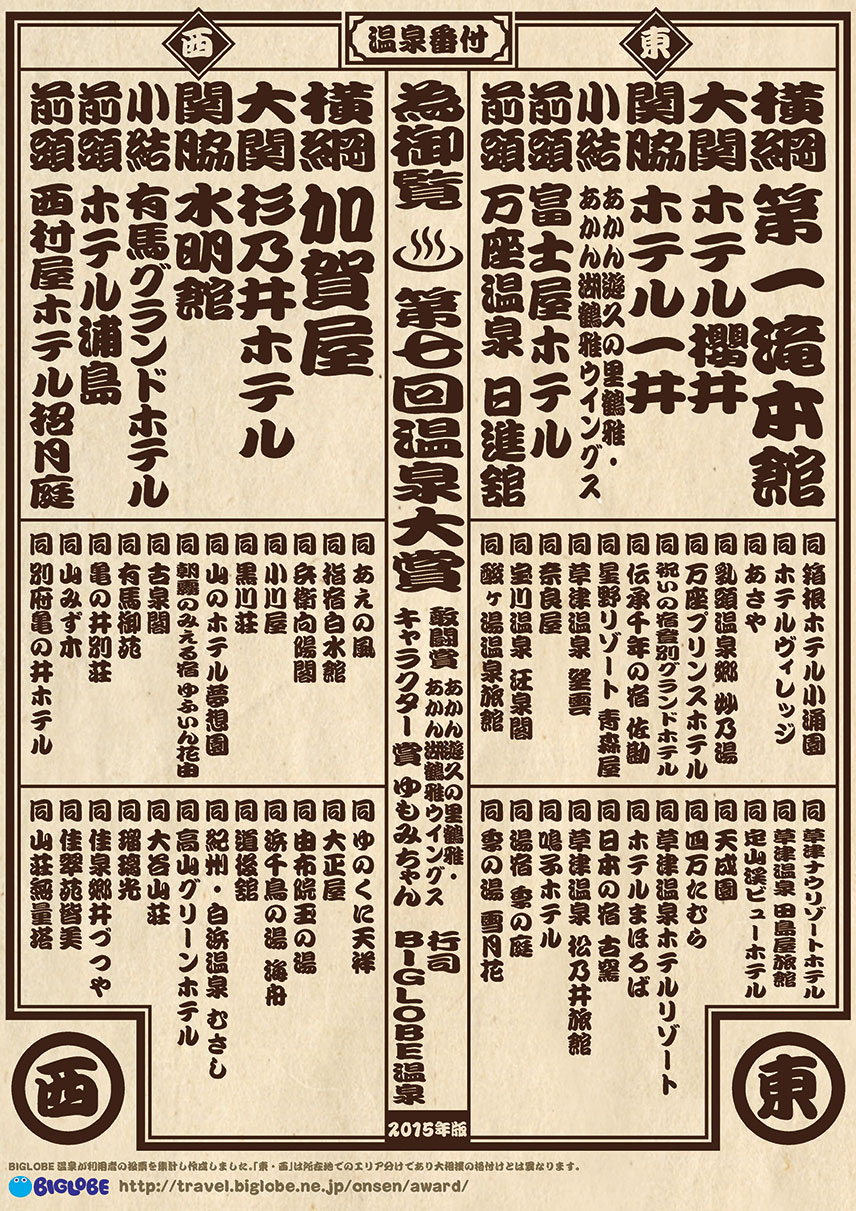 温泉番付
東
横綱 第一滝本館
大関 ホテル櫻井
関脇 ホテル一井
小結 あかん遊久の里鶴雅・
あかん湖鶴雅ウイングス
前頭 富士屋ホテル
前頭 万座温泉 日進舘
同 箱根ホテル小涌園
同 ホテルヴィレッジ
同 あさや
同 乳頭温泉郷 妙乃湯
同 万座プリンスホテル
同 祝いの宿登別グランドホテル
同 伝承千年の宿 佐勘
同 星野リゾート 青森屋
同 草津温泉 望雲
同 奈良屋
同 宝川温泉 汪泉閣
同 酸ヶ湯温泉旅館
同 草津ナウリゾートホテル
同 草津温泉 田島屋旅館
同 定山渓ビューホテル
同 天成園
同 四万たむら
同 草津温泉ホテルリゾート
同 ホテルまほろば
同 日本の宿 古窯
同 草津温泉 松乃井旅館
同 鳴子ホテル
同 湯宿 季の庭
同 季の湯 雪月花
東
為御覧
第七回温泉大賞
敢闘賞 あかん遊久の里鶴雅・
あかん湖鶴雅ウイングス
キャラクター賞 ゆもみちゃん
行司
BIGLOBE温泉
2015年版
西
横綱 加賀屋
大関 杉乃井ホテル
関脇 水明館
小結 有馬グランドホテル
前頭 ホテル浦島
前頭 西村屋ホテル招月庭
同 あえの風
同 指宿白水館
同 兵衛向陽閣
同 小川屋
同 黒川荘
同 山のホテル夢想園
同 朝霧のみえる宿 ゆふいん花由
同 古泉閣
同 有馬御苑
同 亀の井別荘
同 山みず木
同 別府亀の井ホテル
同 ゆのくに天祥
同 大正屋
同 由布院玉の湯
同 浜千鳥の湯 海舟
同 道後舘
同 紀州・白浜温泉 むさし
同 高山グリーンホテル
同 大谷山荘
同 瑠璃光
同 佳泉郷井づつや
同 佳翠苑皆美
同 山荘無量塔
西
BIGLOBE温泉が利用者の投票を集計し作成しました。「東・西」は所在地でのエリア分けであり大相撲の格付けとは異なります。
BIGLOBE http://travel.biglobe.ne.jp/onsen/award/